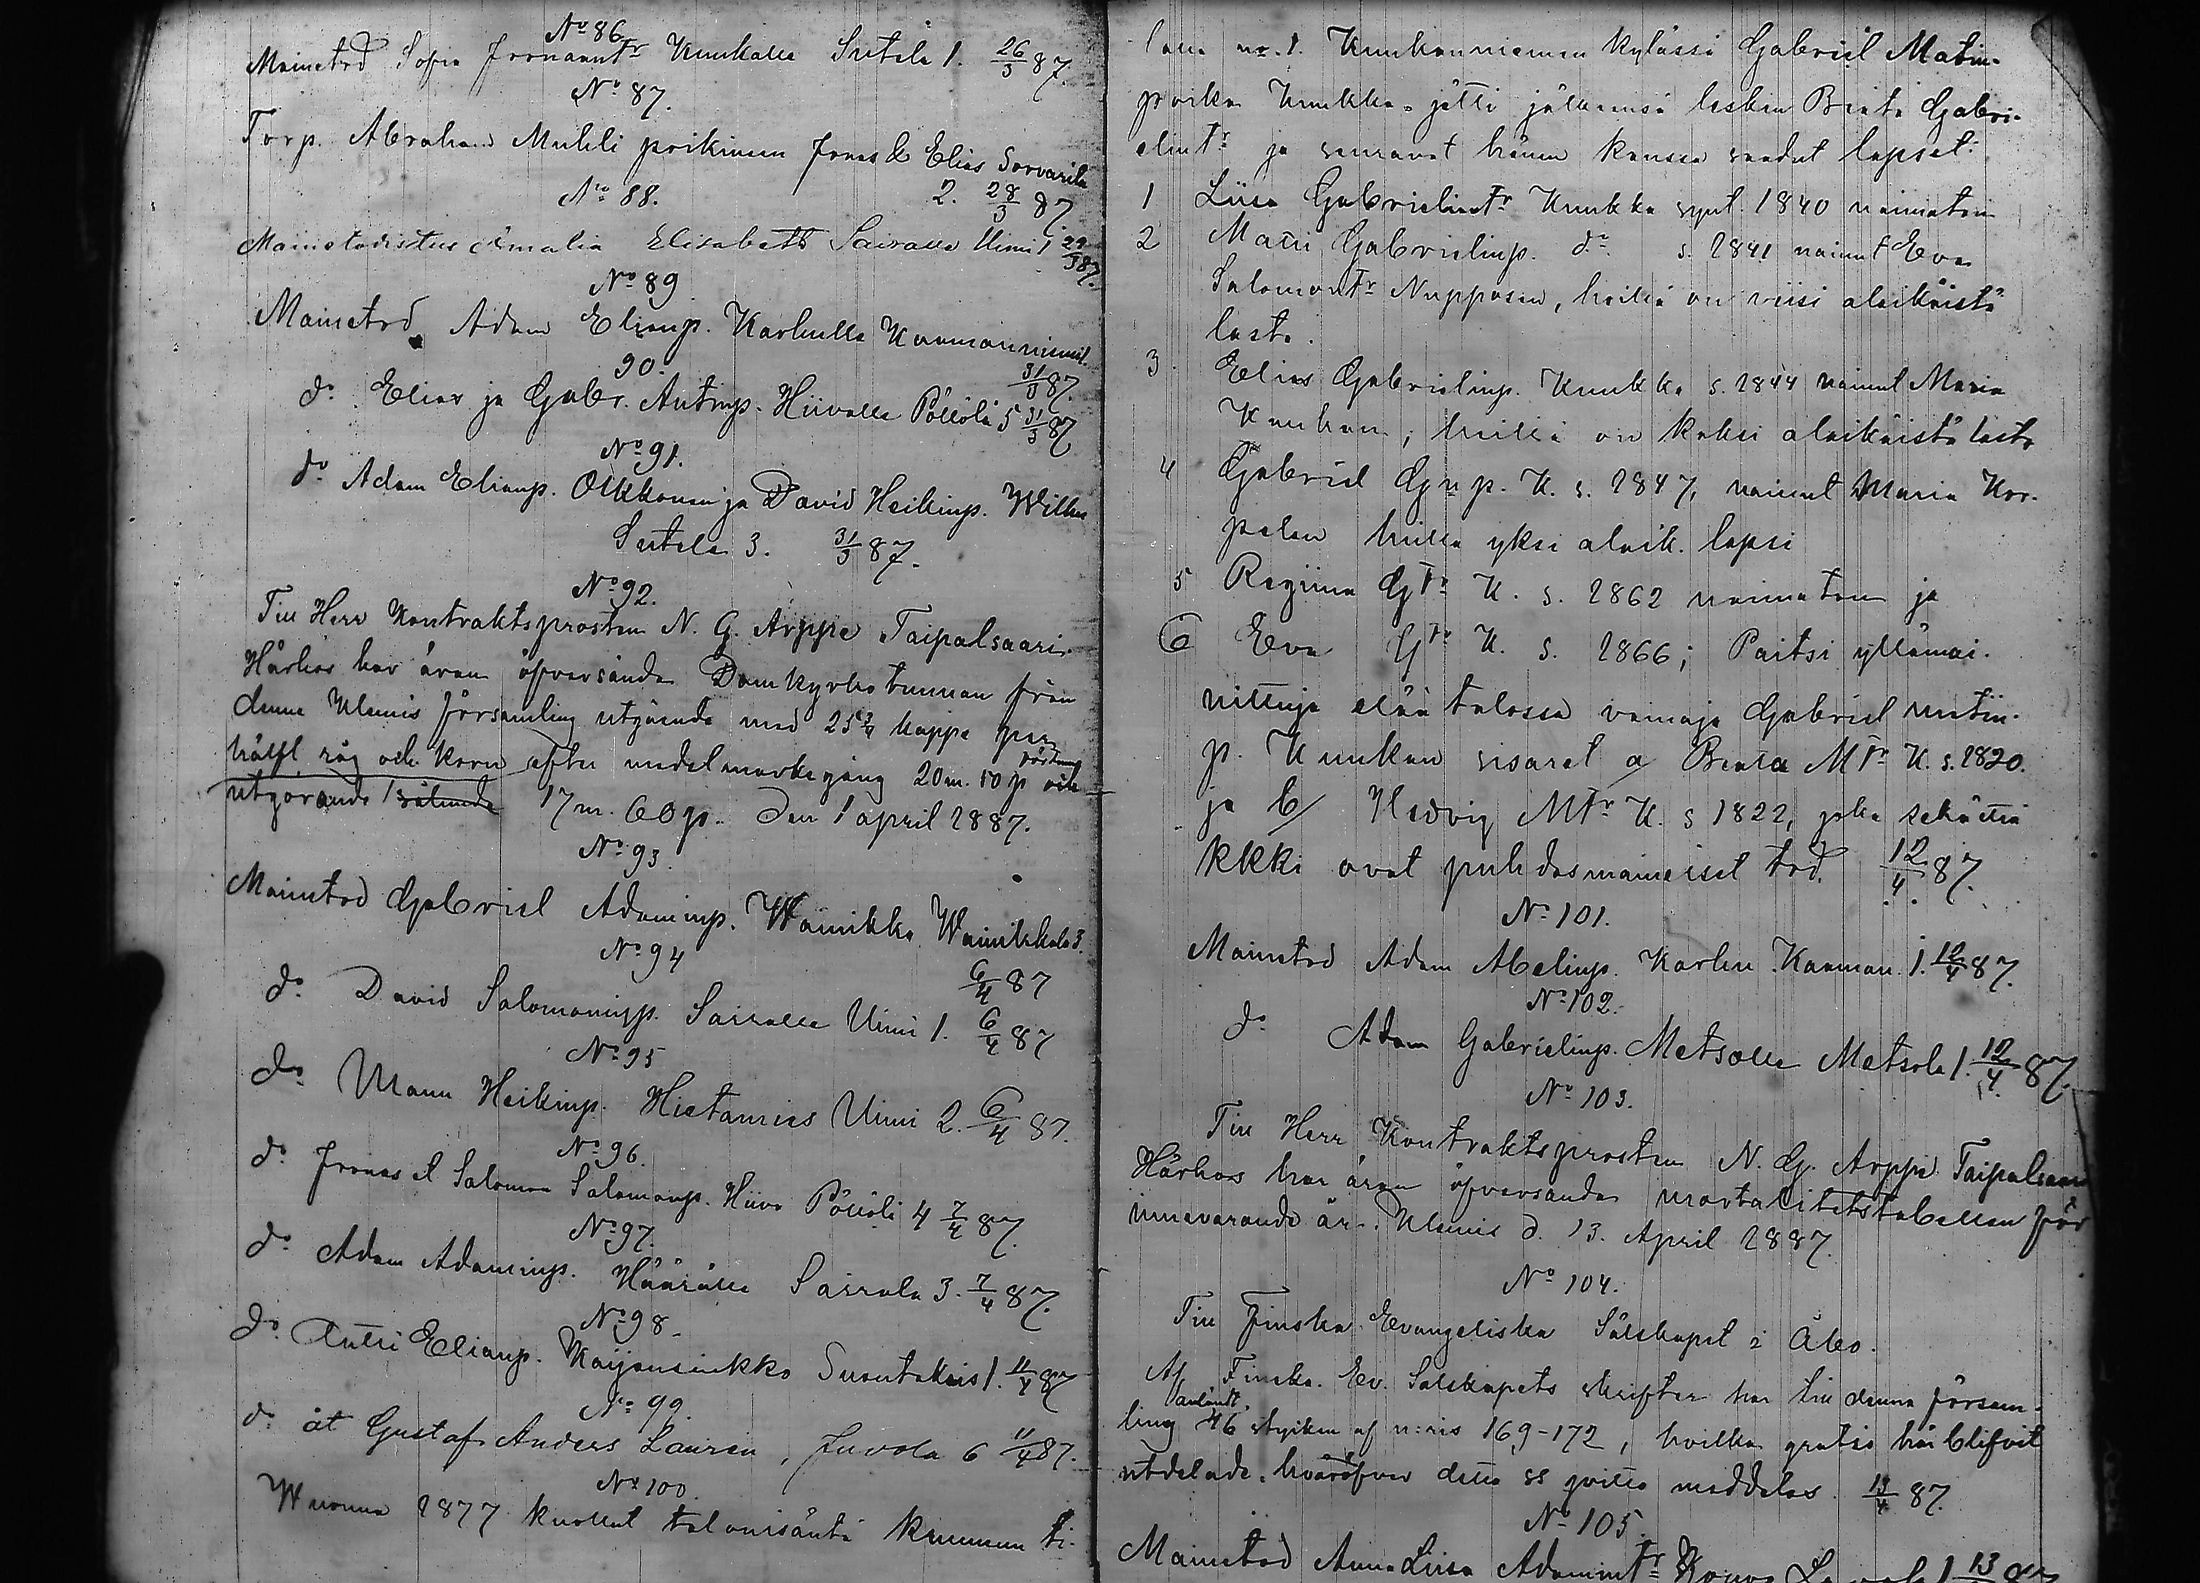 No 86.
Mainetod Sofia Joonaantr Kuukalle Sutela 1. 26/3 87.
No 87.
Torp. Abraham Muhli poikineen Jonas & Elias Sorvarila
2. 28/3 87.
No 88.
Mainetodistus Amalia Elisabeth Sairalle Uimi 1 29/3 87.
No 89.
Mainetod. Adam Elianp. Karhulle Kaamanniemi
31/3 87.
90.
do Elias ja Gabr. Antinp. Hiivalle Pöllölä 5 31/3 87
No 91.
do Adam Elianp. Olkkonen ja David Heikinp. Wilke
Sutela 3. 31/3 87.
No 92.
Till Herr Kontraktsprosten N. G. Arppe Taipalsaari.
Härhos har äran öfversända Domkyrko tunnan från
denna Klemis församling utgående med 25 3/4 kappe per
hälft råg och korn efter medelmarkegång 20 m. 50 p och
utgörande sålunda 17 m. 60 p. Den 1 april 1887.
No 93.
Mainetod Gabriel Adaminp. Wainikka Wainikkala 3.
6/4 87
No 94
do David Salomoninp. Sairalle Uimi 1. 6/4 87
No 95
do Mann Heikinp. Hietamies Uimi 2. 6/4 87.
No 96.
do Joonas & Salomon Salomonp. Hiiva Pöllölä 4 7/4 87.
No 97.
do Adam Adaminp. Häärälle Sairala 3. 7/4 87.
No 98.
do Antti Elianp. Kaijansinkko Suontakais 1. 11/4 87
No 99.
do åt Gustaf Anders Lauren, Juvola 6 11/4 87.
No 100.
Wuonna 1877 kuollut talonisäntä Kuumun ti-
lalla no. 1. Kunkanniemen kylässä Gabriel Matin-
poika Kuukka jätti jälkeensä lesken Beata Gabri-
elintr ja seuraavat hänen kanssa saadut lapset:
1 Liisa Gabrielintr Kuukka synt. 1840 naimaton
2 Matti Gabrielinp. do s. 1841 nainut Eva
Salomontr Nupposen, heillä on viisi alaikäistä
lasta.
3. Elias Gabrielinp. Kuukka s. 1844 nainut Maria
Kauhan, heillä on kaksi alaikäistä lasta
4 Gabriel Gp. K. s. 1847, nainut Maria Kor-
pelan heillä yksi alaik. lapsi
5 Regina Gtr K. s. 1862 naimaton ja
6 Eva Gtr K. s. 1866; Paitsi yllämai-
nittuja elää talossa vainaja Gabriel Matin-
p. Kuukan sisaret a/ Beata Mtr K. s. 1820.
ja b/ Hedvig Mtr K. s 1822, jotka
kkki ovat puhdasmaineiset tod. 12/4 87.
No 101.
Mainetod Adam Abelinp. Karhu. Kaaman. 1. 12/4 87.
No 102.
do Adam Gabrielinp. Metsälle Metsola 1. 12/4 87.
No 103.
Till Herr Kontraktsprosten N. G. Arppe Taipalsaari
Härhos har äran öfversända mortalitetstabellen för
innevarande år. Klemis d. 13. April 1887.
No 104.
Till Finska Evangeliska Sälskapet i Åbo.
Af Finska Ev. Sälskapets skrifter har till denna försam-
anländt
ling 46 stycken af n:ris 169-172, hvilka gratis här blifvit
utdelade, hvaröfver detta ss qvitto meddelas. 13/4 87.
No 105.
Mainetod Anna Liisa Adamintr